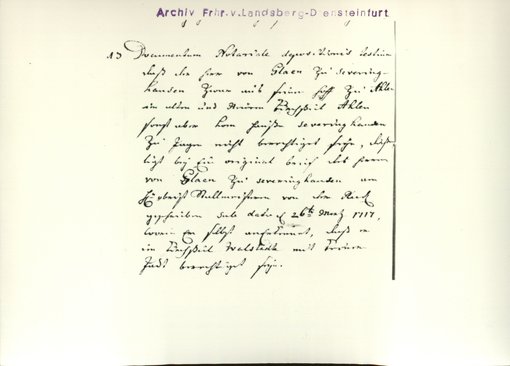 Archiv Frhr.v.Landsberg-D ensteinfurt
13 Documentum Notariale depositionis testium
daß die Herr von Glaen zu severing-
hausen Zwar auß seinem Hoff zu Ahlen
in alten und Neuen Kirchspiel Ahlen
sonst aber vom Hause severinghausen
zu Jagen nicht berechtiget seye, dabey
ligt bey Ein original brief des Herrn
von Glaen zu severinghausen an
Stallmeistern von der Reck
geschrieben sub dato d 26t Mertz 1717,
worin er selbst anerkennet, daß er
im Kirchspiel Walstedde mit keiner
Jacht berechtiget seye.